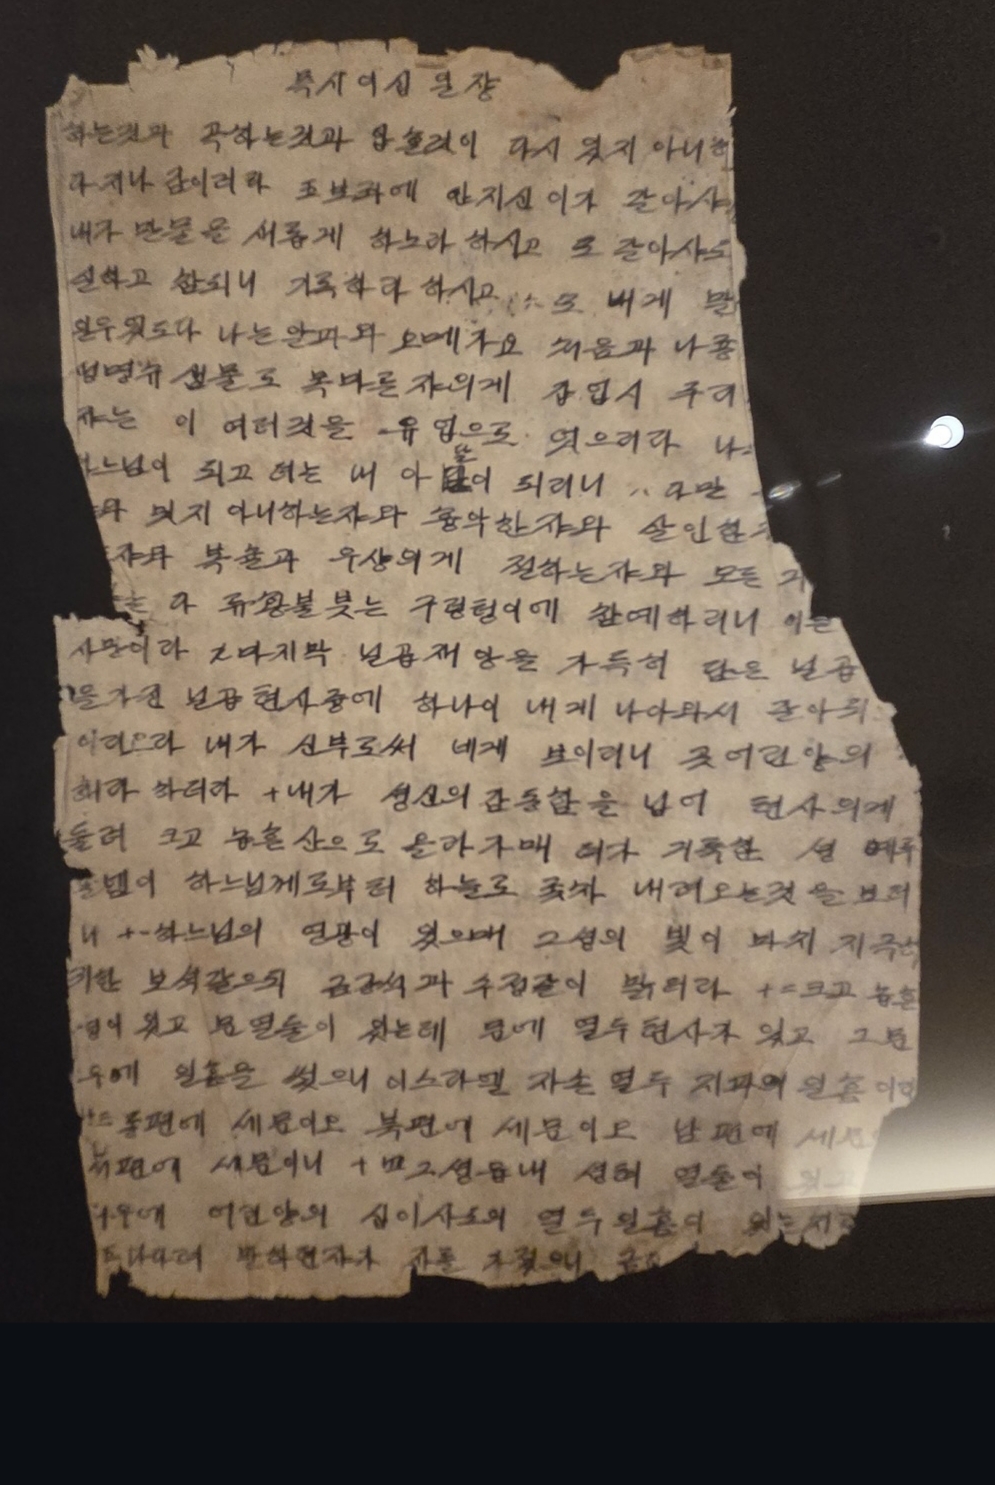 묵시이십일장
하는것과 곡하는것과 압흔것이 다시 잇지 아니하
라 지나 감이러라 五보좌에 안지신 이가 갈아사
내가 만물을 새롭게 하노라 하시고 또 갈아사
실하고 참되니 기록하라 하시고 六 또 내게 말
일우윗도다 나는 알파와 오메가요 처음과 나죵
생명슈 샘물로 목마른 쟈의게 갑 업시 주리
쟈는 이 여러것을 유업으로 엇으리라 나는
느님이 되고 저는 내 아들이 되리니 八 다만
와 밋지 아니하는쟈와 흉악한 쟈와 살인한
쟈와 복술과 우상의게 절하는쟈와 모든 거
는 다 류황불 붓는 구렁텅이에 참예하리니 이는
사망이라 九 마지막 닐곱재앙을 가득히 담은 닐곱
을 가진 닐곱 텬사즁에 하나이 내게 나아와서 갈아되
이리오라 내가 신부로써 네게 보이리니 곳 어린 양의
희라 하더라 十 내가 셩신의 감동함을 닙어 텬사의게
들려 크고 놉흔 산으로 올라 가매 뎌가 거룩한 셩 예루
살렘이 하느님께로부터 하늘로 좃차 내려오는것을 보려
니 十一 하느님의 영광이 잇으매 그셩의 빛이 마치 지극히
귀한 보석갈으되 금강석과 수졍갈이 밝더라 十二 크고 놉흔
셩이 잇고 문 열둘이 잇는데 문에 열두텬사가 잇고 그 문
우에 일홈을 썻으니 이스라엘 자손 열두 지파의 일홈이라
十三 동편에 세문이오 북편에 세문이오 남편에 세문
셔편에 세문이니 十四 그셩읍내 셩터 열둘이 잇고
우에 어린양의 십이사도의 열두일홈이 잇는지라
말하던쟈가 자를 가졋으니 금